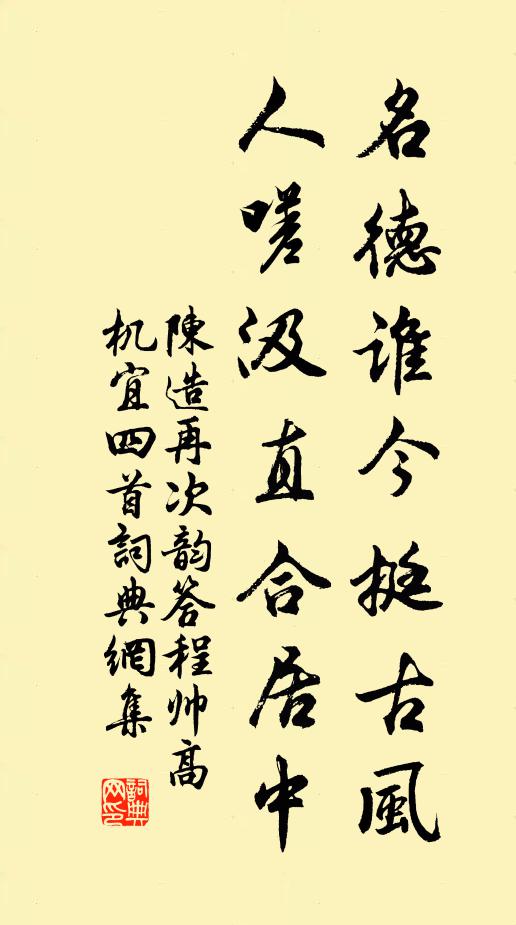 名德谁今挺古風
人嗟汲直合居中
陳造再次韵答程帅高
机宜四首詞典網集
詞典
网印